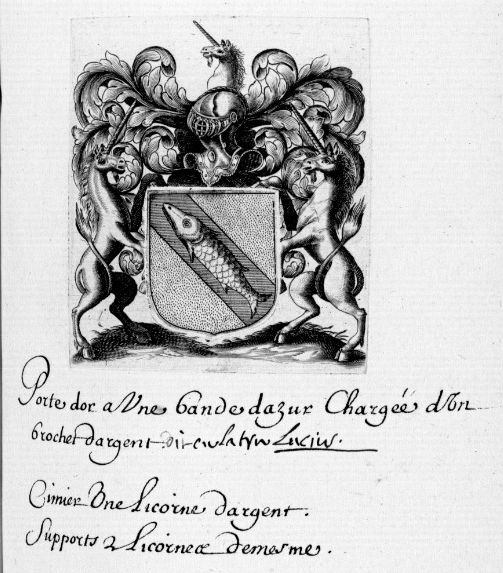 Porte dor a Une bande dazur Chargéé dUn
brochet dargent dit en latin Lucius.
Cimier Une licorne dargent.
Supports 2 licornes demesme.